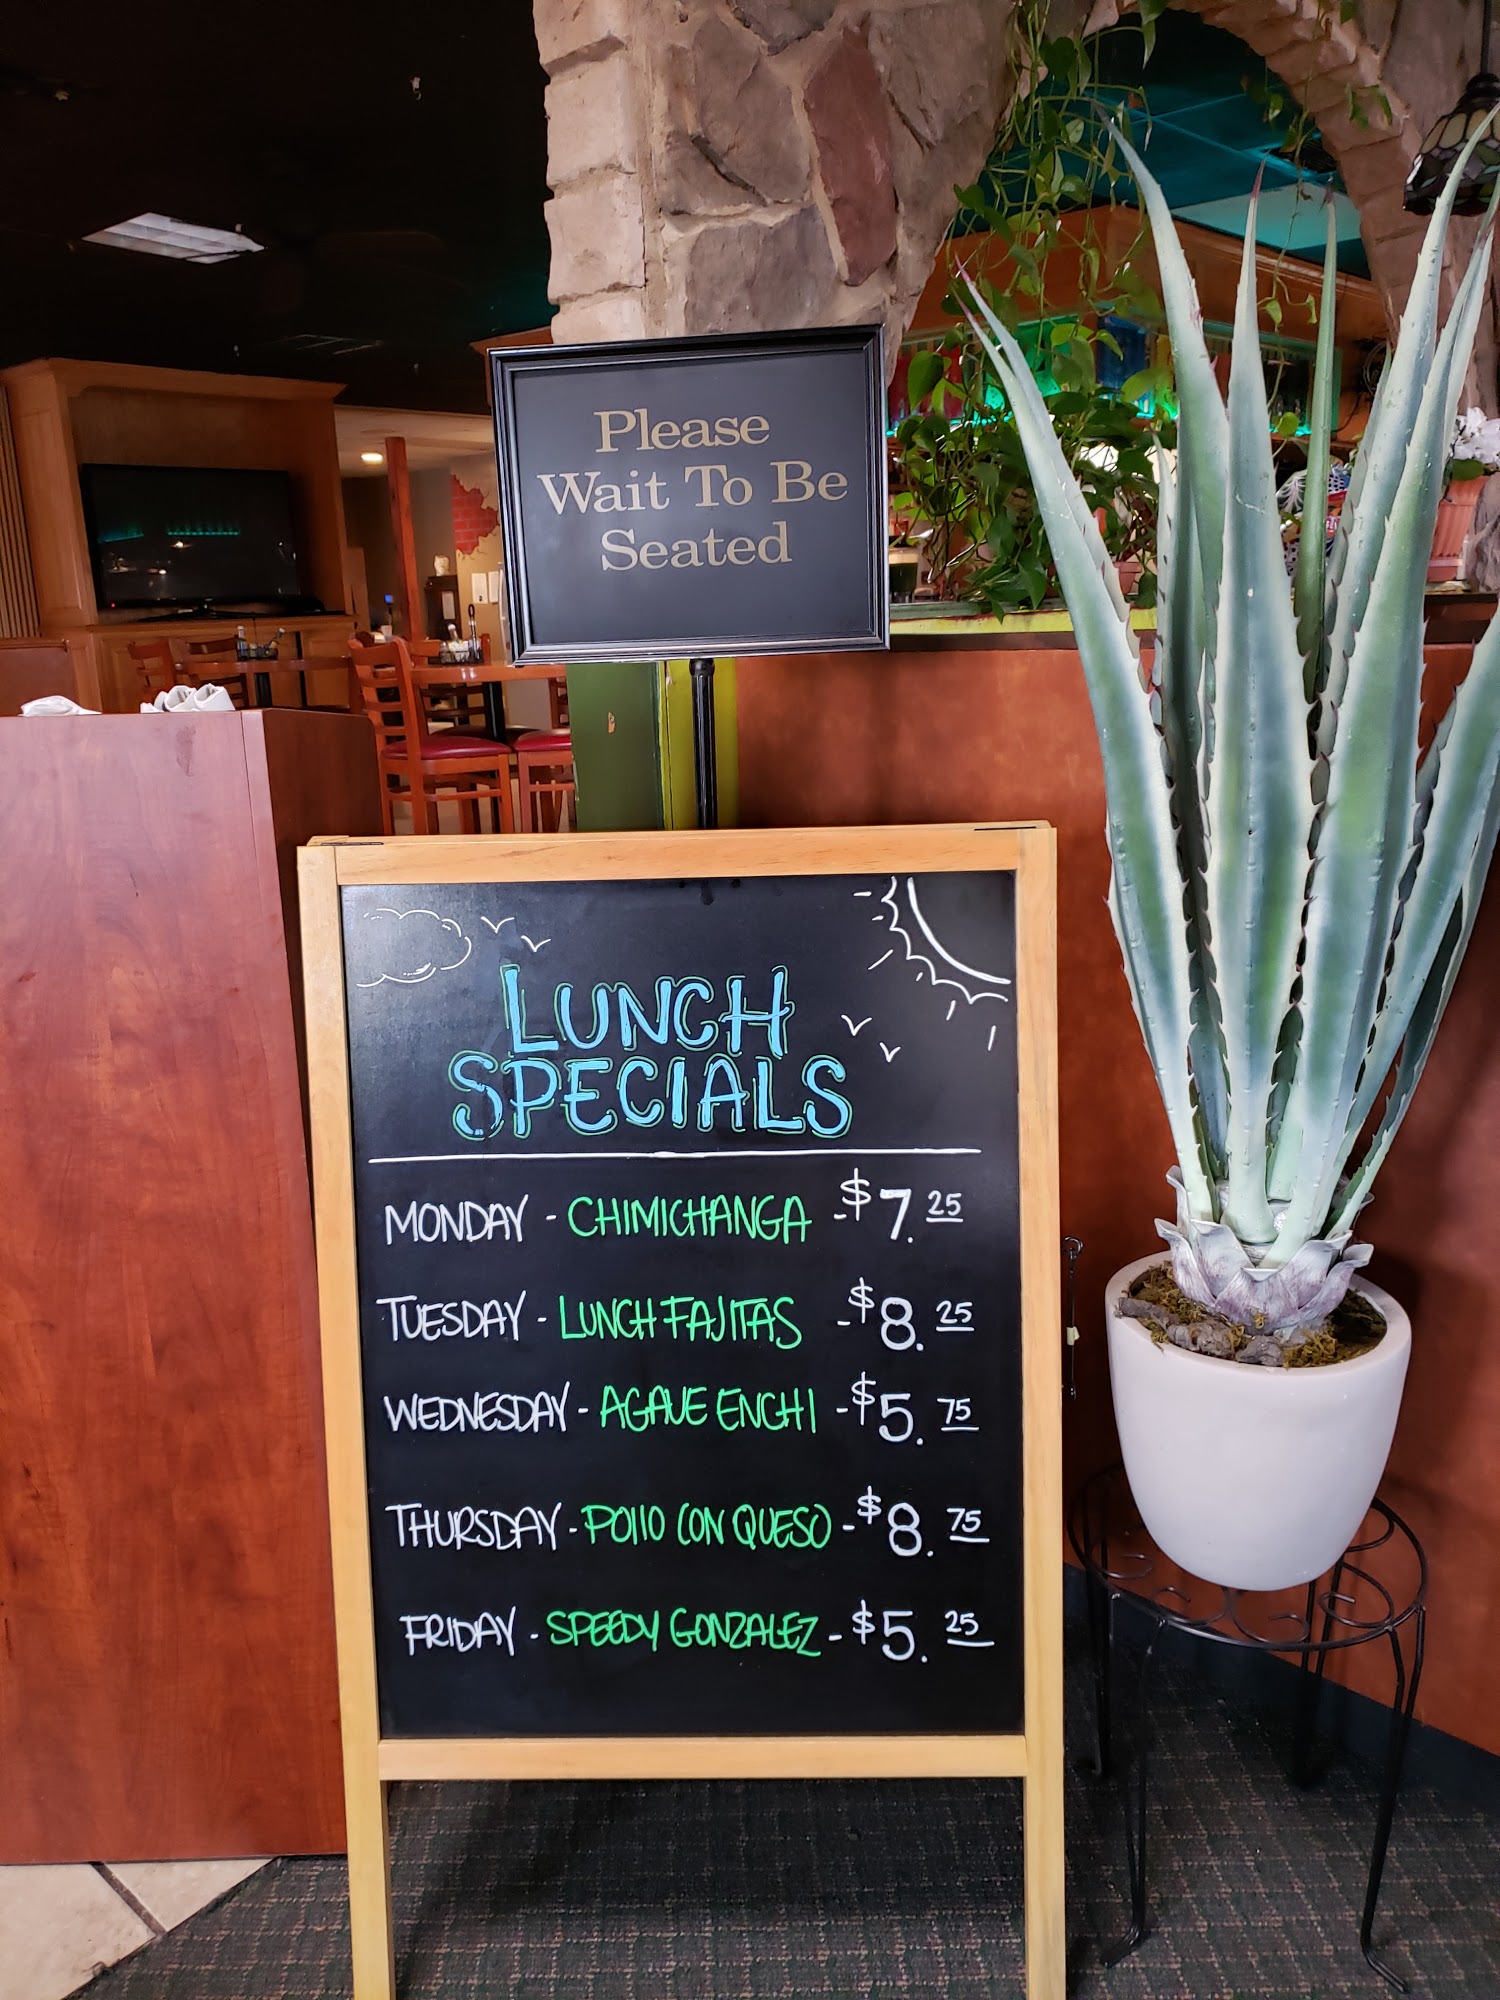 Please
Wait To Be
Seated
LUNCH
SPECIALS
MONDAY - CHIMICHANGA - $7.25
TUESDAY - LUNCH FAJITAS - $8.25
WEDNESDAY - AGAVE ENCHI - $5.75
THURSDAY - POllO CON QUESO - $8.75
FRIDAY - SPEEDY GONZALEZ - $5.25